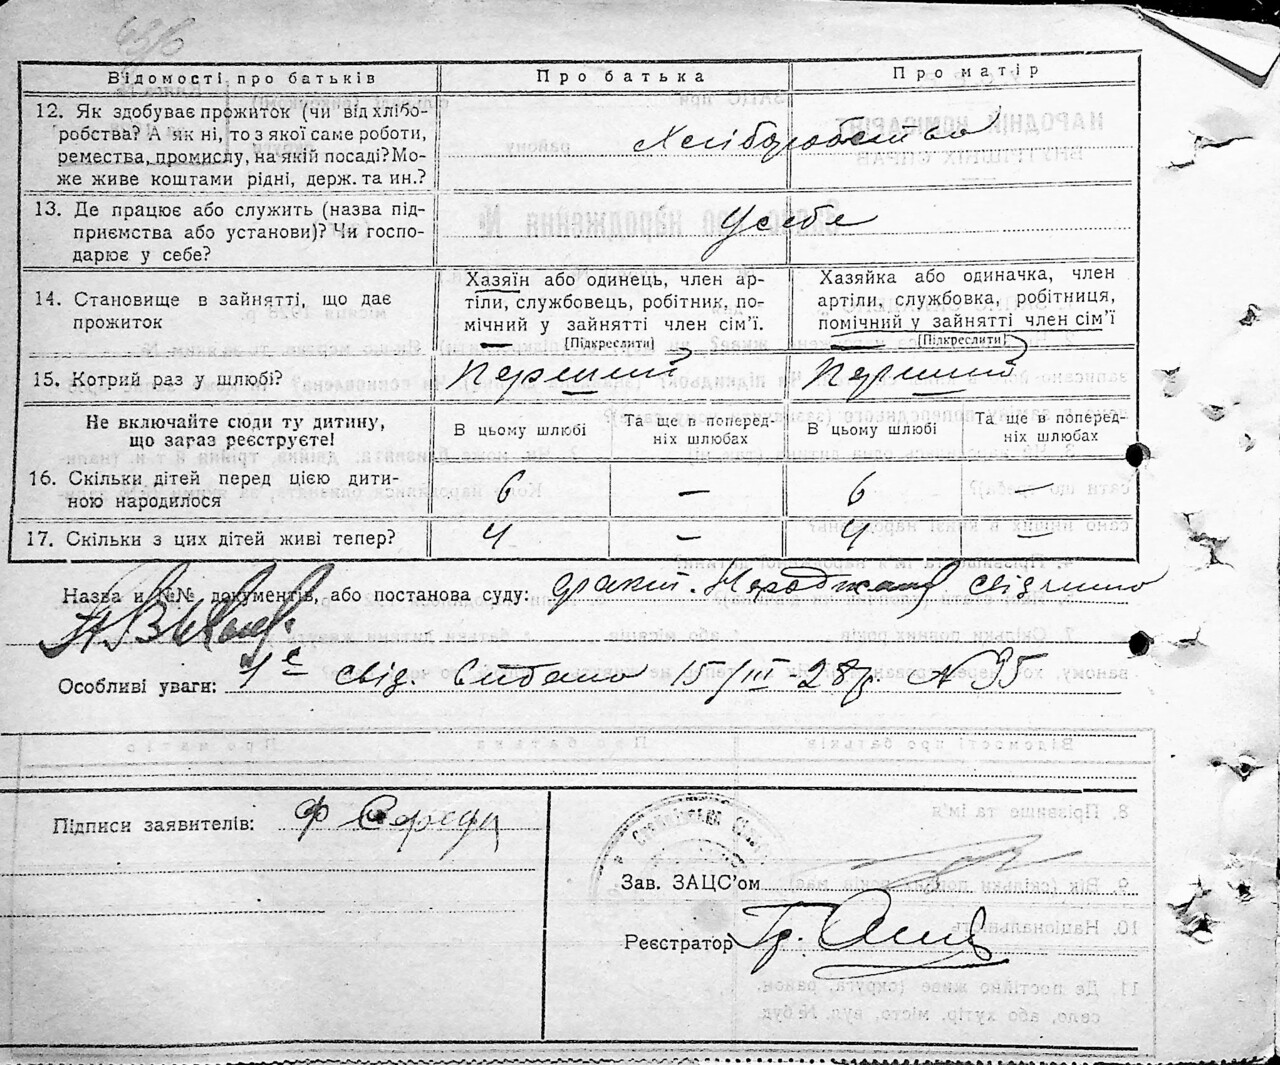 Відомості про батьків
Про батька
Про матір
12. Як здобуває прожиток (чи від хлібо-
робства? А як ні, то з якої саме роботи,
ремества, промислу, на якій посаді? Мо-
же живе коштами рідні, держ. та ин.?
Хліборобство
13. Де працює або служить (назва під-
приємства або установи)? Чи госпо-
дарює у себе?
У себе
14. Становище в зайнятті, що дає
прожиток
Хазяїн або одинець, член ар-
тіли, службовець, робітник, по-
мічний у зайнятті член сім'ї.
[Підкреслити]
Хазяйка або одиначка, член
артіли, службовка, робітниця,
помічний у зайнятті член сім'ї
[Підкреслити]
15. Котрий раз у шлюбі?
Перший
Перший
Не включайте сюди ту дитину,
що зараз реєструєте!
В цьому шлюбі
Та ще в поперед-
ніх шлюбах
В цьому шлюбі
Та ще в поперед-
ніх шлюбах
16. Скільки дітей перед цією дити-
ною народилося
6
—
6
—
17. Скільки з цих дітей живі тепер?
4
—
4
—
Назва и №№ документів, або постанова суду:
Особливі уваги: 1е свід. видано 15/III-28р. № 35
Підписи заявителів: Ф Середа
Зав. ЗАЦС'ом
Реєстратор Гр.